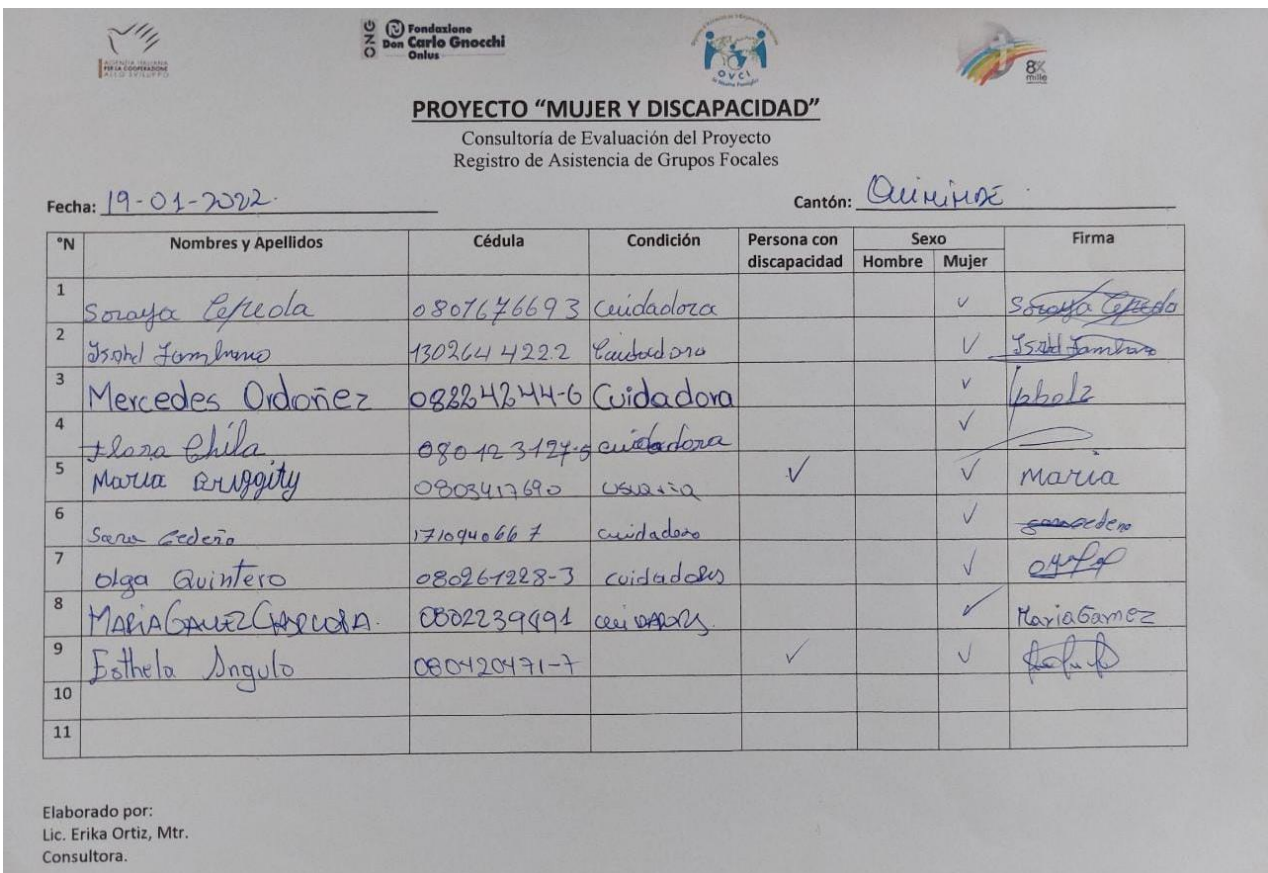 AGENZIA ITALIANA
PER LA COOPERAZIONE
ALLO SVILUPPO
ONG Fondazione
Don Carlo Gnocchi
Onlus
OVCI
la Nostra Famiglia
8x
mille
PROYECTO “MUJER Y DISCAPACIDAD”
Consultoría de Evaluación del Proyecto
Registro de Asistencia de Grupos Focales
Fecha: 19-01-2022. Cantón: Quininde
°N Nombres y Apellidos Cédula Condición Persona con discapacidad Sexo Firma
Hombre Mujer
1 Soraya Cepeda 0801676693 Cuidadora ✓ Soraya Cepeda
2 130264422.2 ✓
3 Mercedes Ordoñez Cuidadora ✓
4 Flora Chila 080123127-5 cuidadora ✓
5 Maria Briggity 0803417690 usuaria ✓ ✓ Maria
6 Sara Cedeño 171094066 7 cuidadora ✓ cedeno
7 Olga Quintero 080261228-3 ✓
8 MARIA GAMEZ ✓ Maria Gamez
9 Esthela Angulo 080420471-7 ✓ ✓
10
11
Elaborado por:
Lic. Erika Ortiz, Mtr.
Consultora.